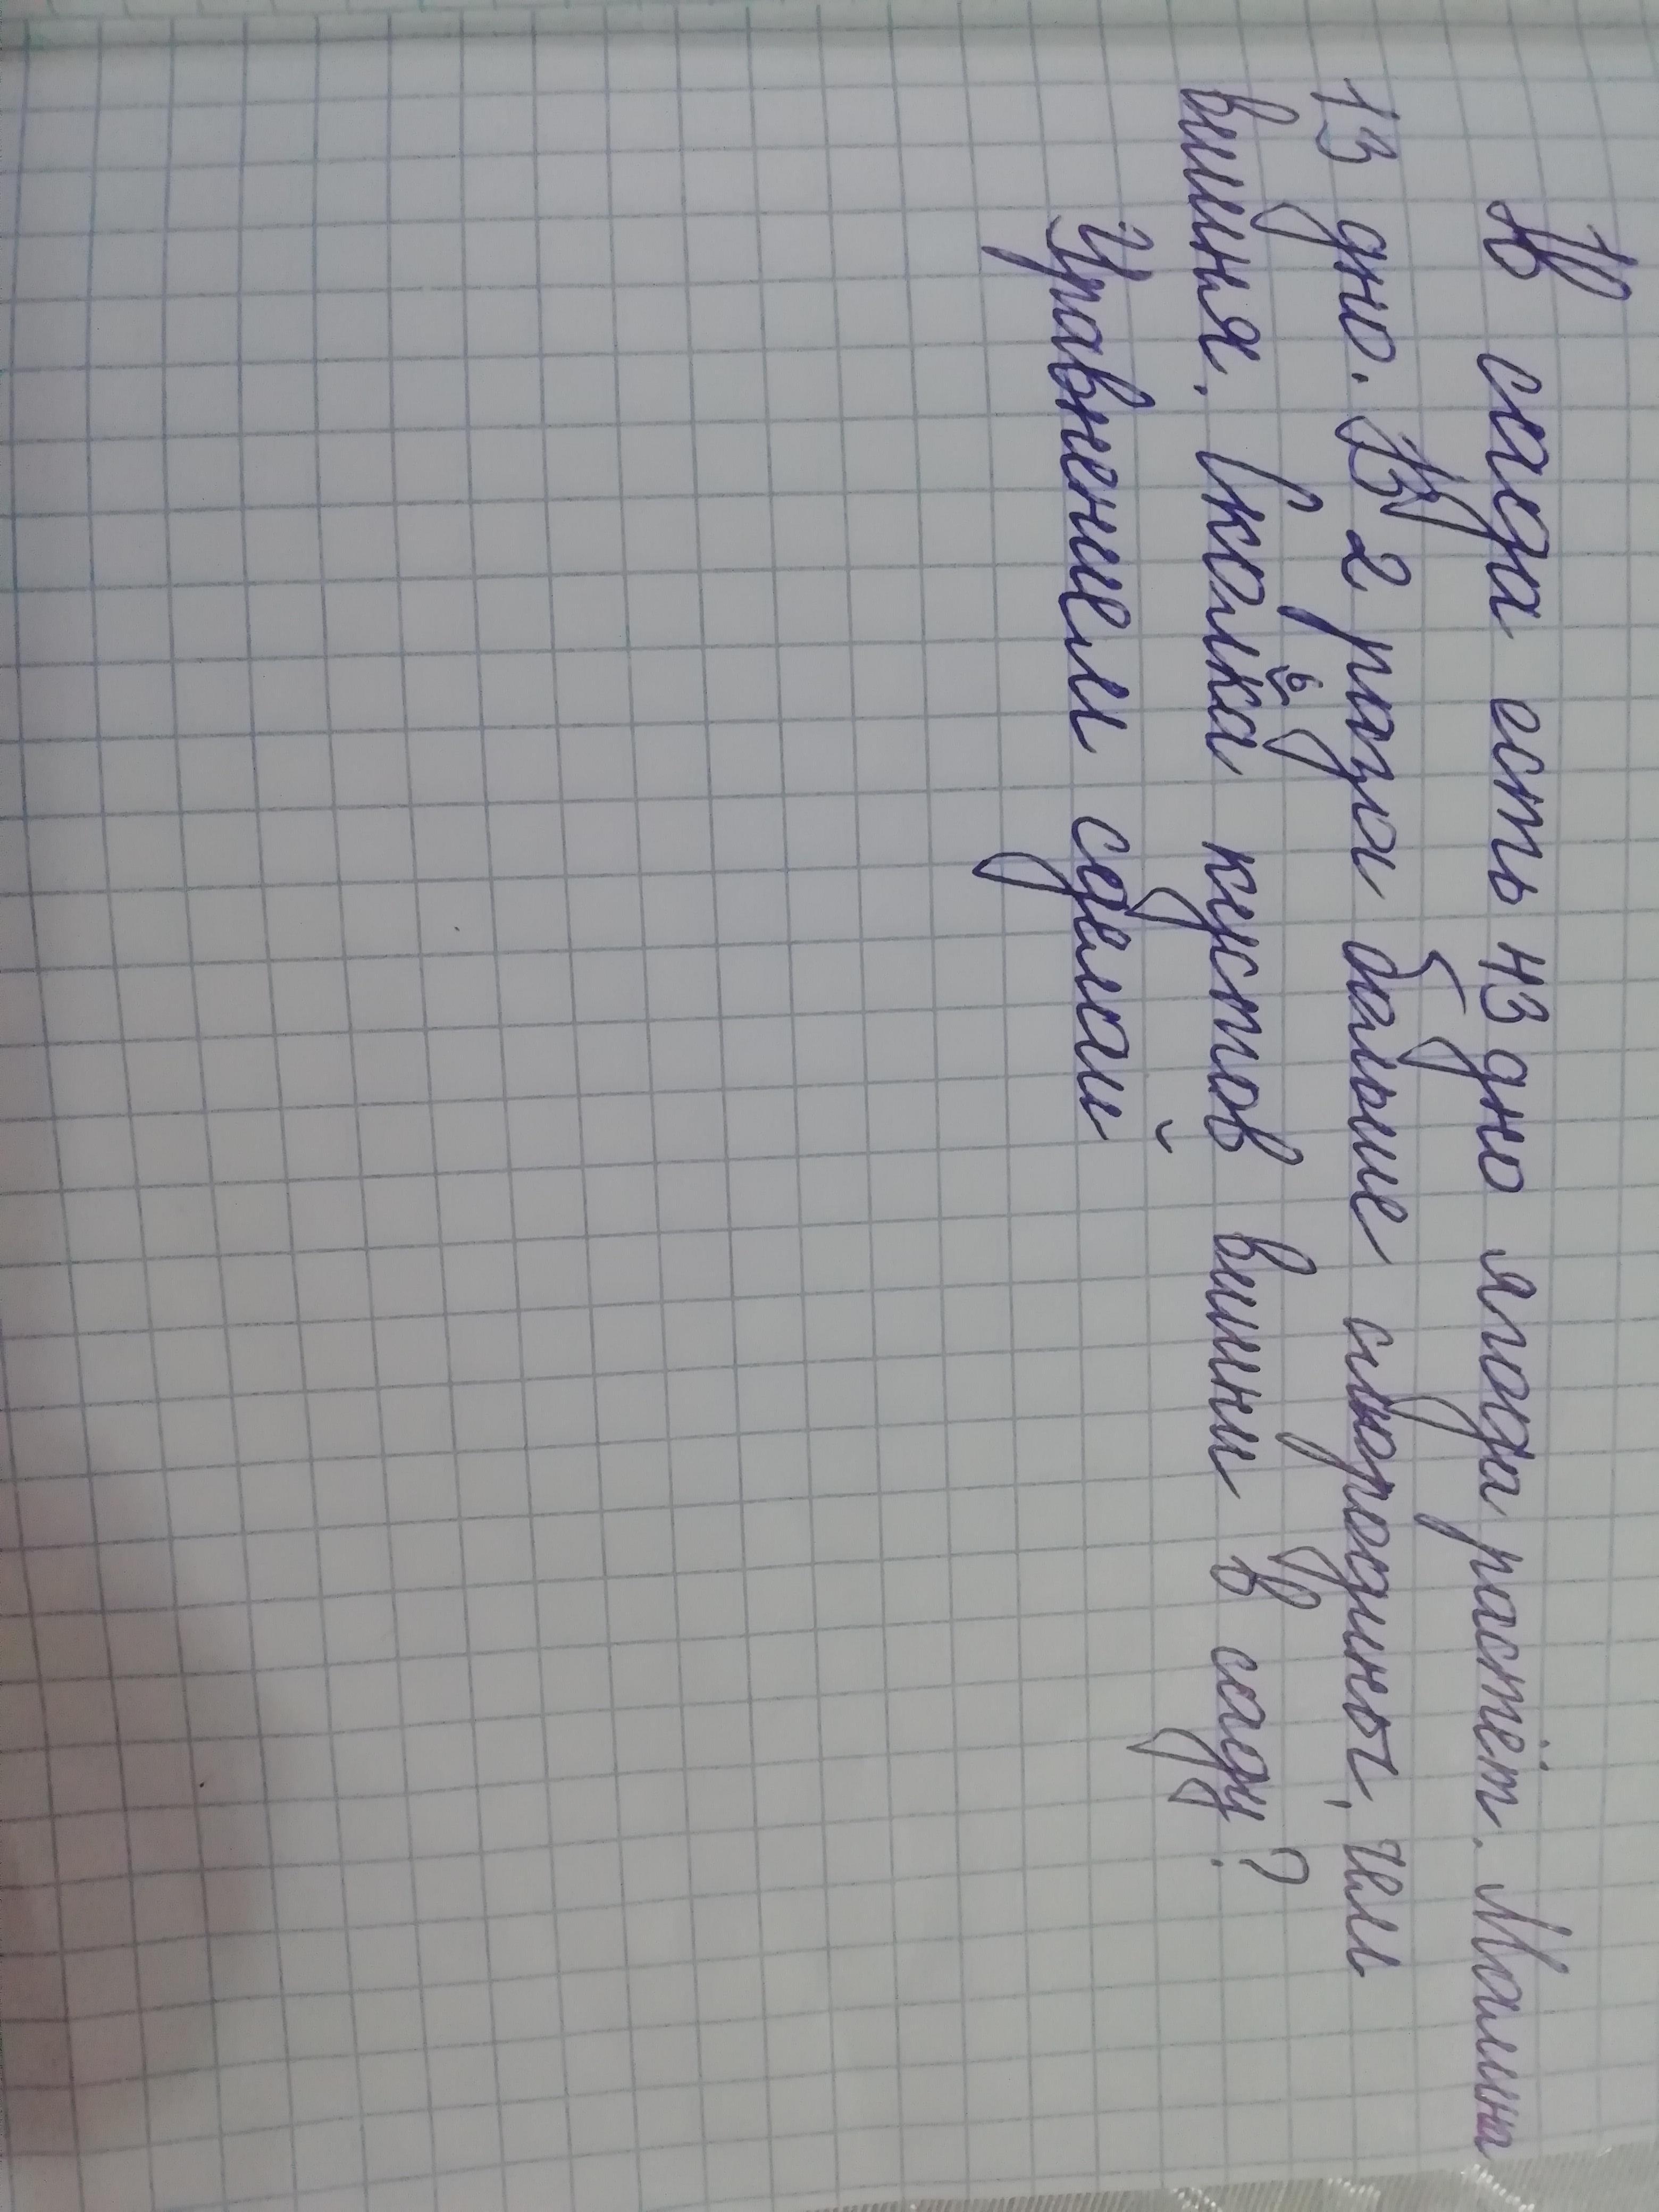 В сада есть 43 дно ягода растёт. Малина
13 дно. В 2 раза больше смородины, чем
вишня. Сколька кустов вишни в саду?
Уравнением сделай